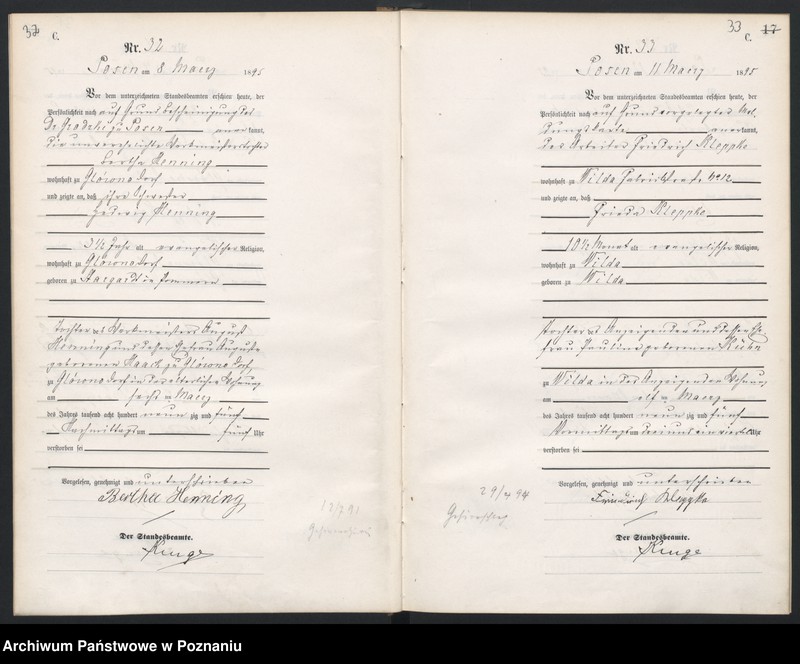 32
C.
Nr. 32
Posen am 8 Maerz 1895
Vor dem unterzeichneten Standesbeamten erschien heute, der
Persönlichkeit nach auf Grund Bescheinigung des
zu Posen anerkannt,
die unverehelichte Werkmeisterstochter
Bertha Henning
wohnhaft zu Glowno Dorf
und zeigte an, daß ihre Schwester
Hedwig Henning
3 1/2 Jahr alt evangelischer Religion,
wohnhaft zu Glowno Dorf
geboren zu Stargard in Pommern
Tochter des Werkmeisters August
Henning und dessen Ehefrau Auguste
geborenen Haack zu Glowno Dorf,
zu Glowno Dorf in der elterlichen Wohnung
am sechsten Maerz
des Jahres tausend acht hundert neun zig und fünf
Nachmittags um fünf Uhr
verstorben sei
Vorgelesen, genehmigt und unterschrieben
Bertha Henning
Der Standesbeamte.
Kruge
12/7 91
33
C. 17
Nr. 33
Posen am 11 Maerz 1895
Vor dem unterzeichneten Standesbeamten erschien heute, der
Persönlichkeit nach auf Grund vorgelegter Mel-
dungskarte anerkannt,
der Arbeiter Friedrich Kleppke
wohnhaft zu Wilda Fabrikstraße No 12
und zeigte an, daß
Frieda Kleppke
10 1/2 Monat alt evangelischer Religion,
wohnhaft zu Wilda
geboren zu Wilda
Tochter des Anzeigenden und dessen Ehe-
frau Pauline geborenen Kühn
zu Wilda in des Anzeigenden Wohnung
am elften Maerz
des Jahres tausend acht hundert neun zig und fünf
Vormittags um drei und ein viertel Uhr
verstorben sei
Vorgelesen, genehmigt und unterschrieben
Friedrich Kleppke
Der Standesbeamte.
Kruge
29/4 94
Archiwum Państwowe w Poznaniu